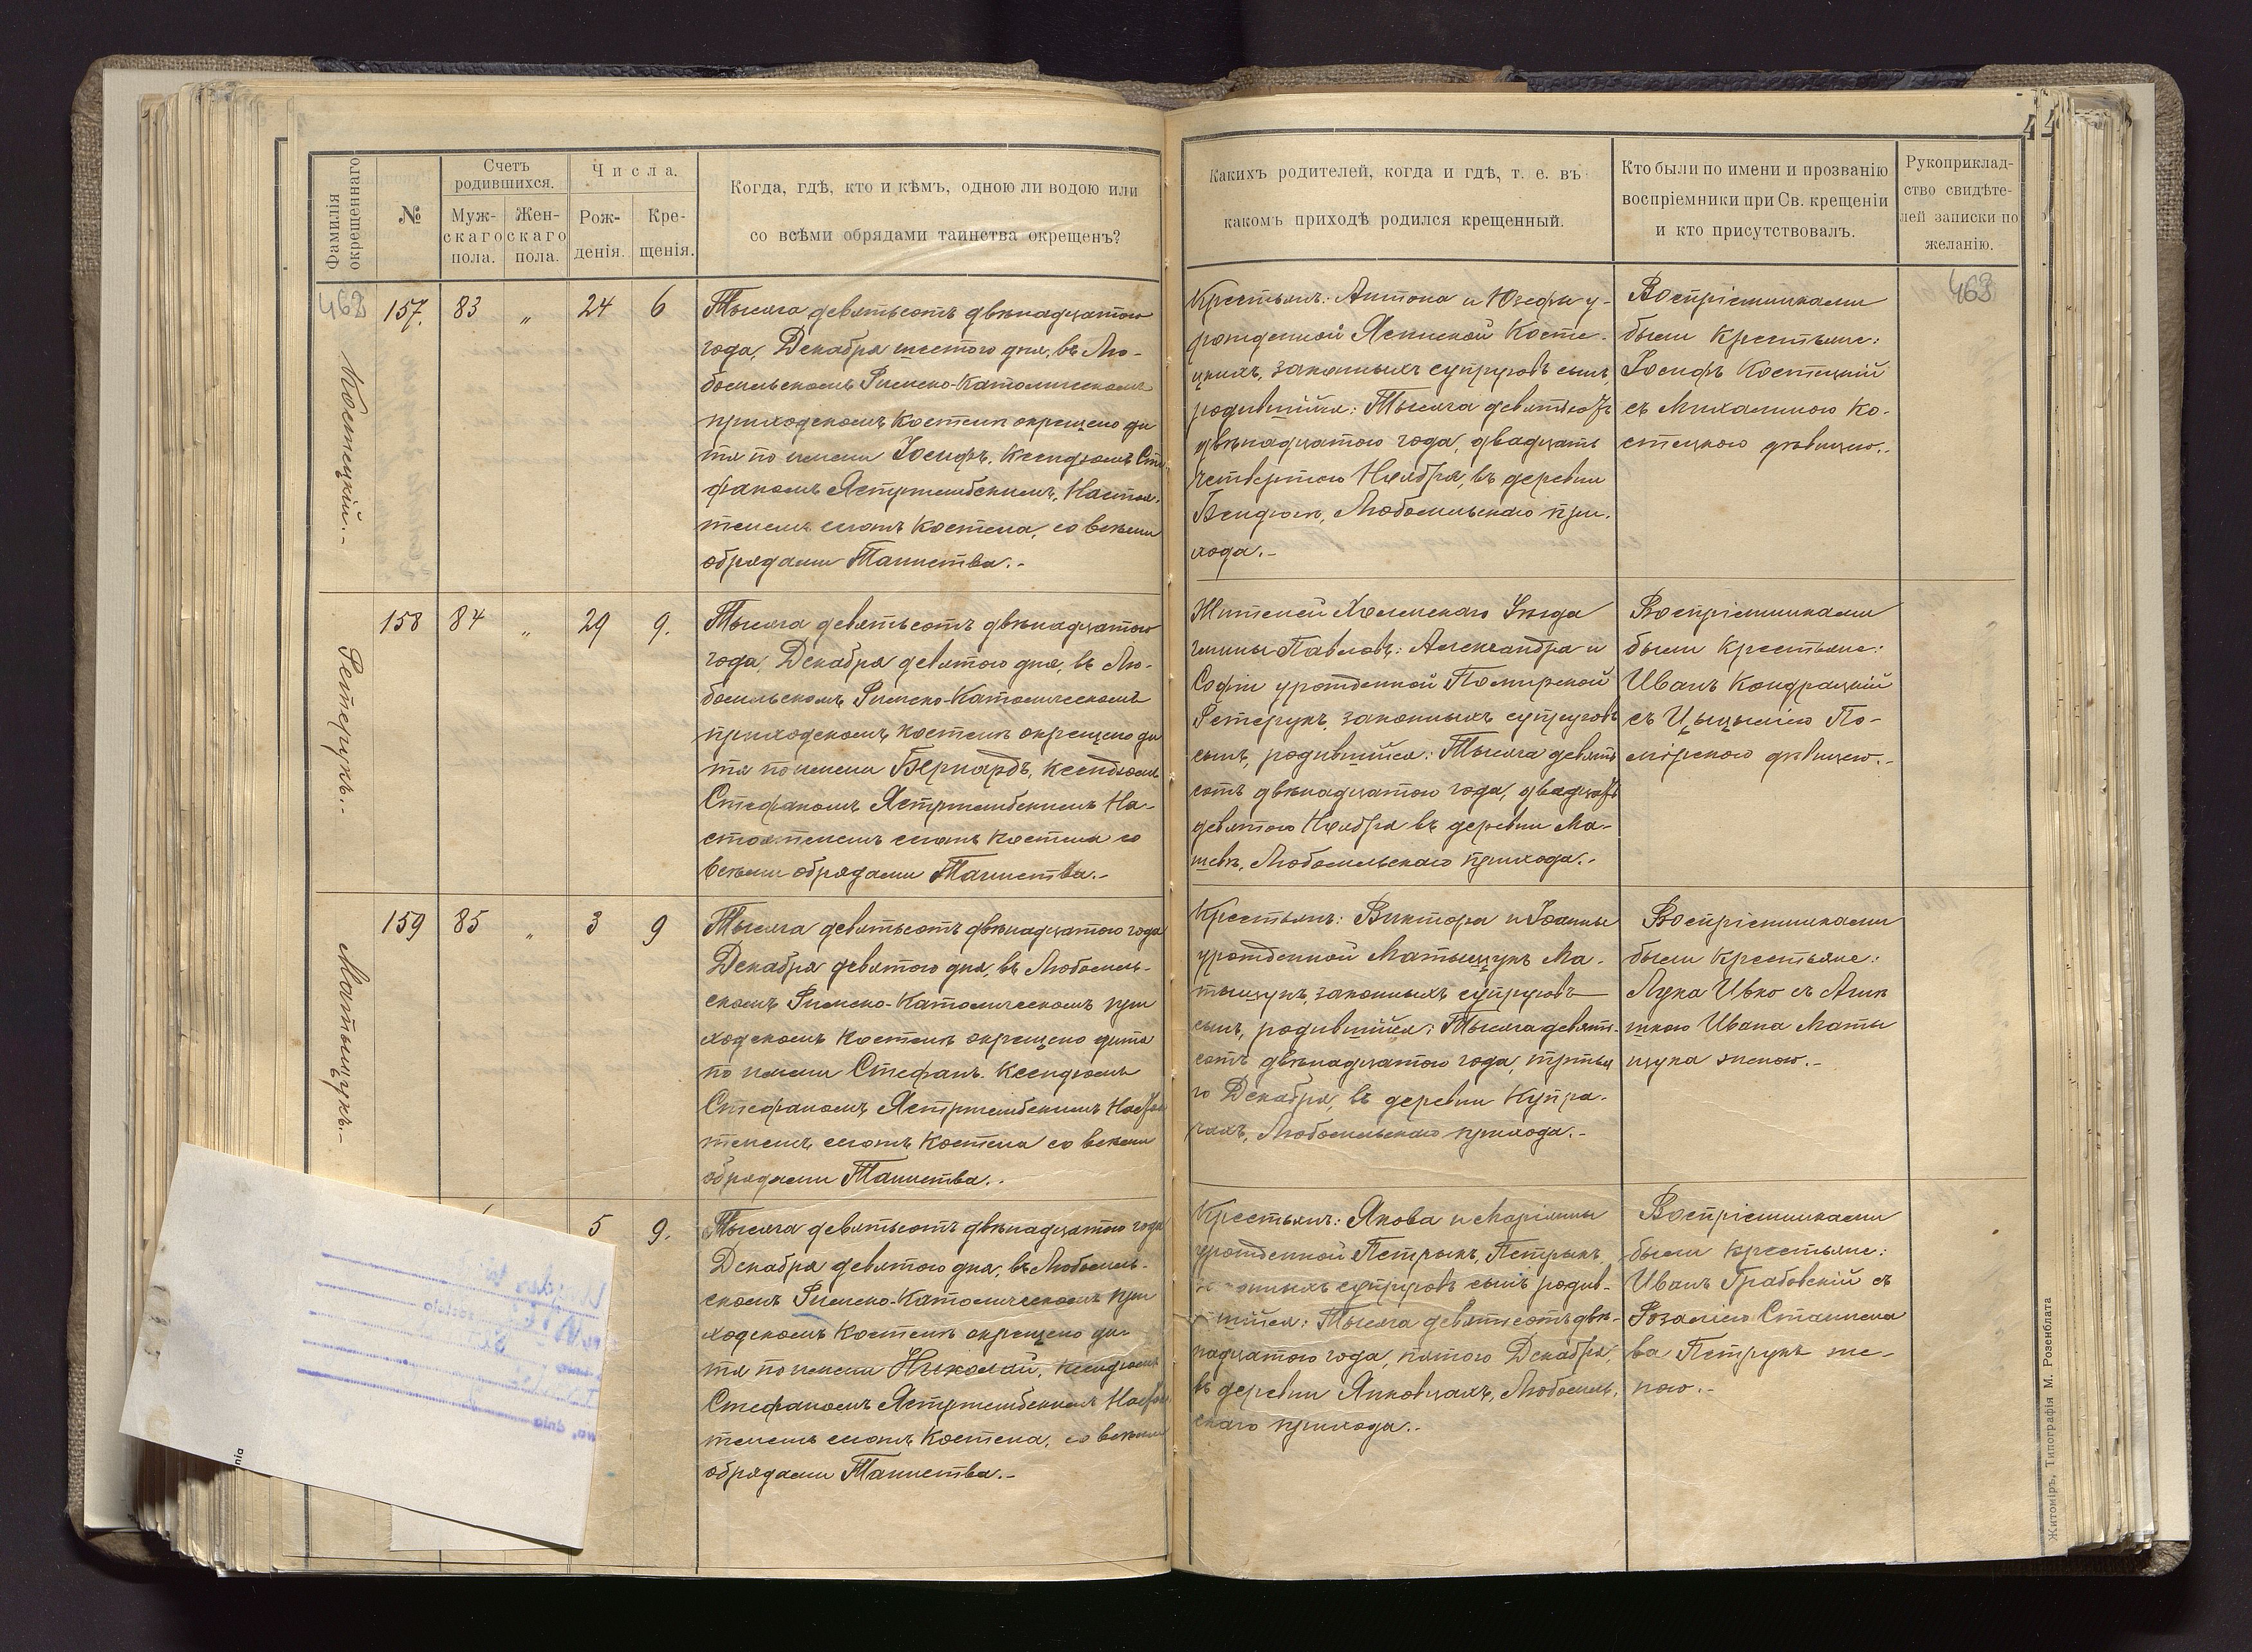 Фамилія окрещеннаго
№
Счетъ родившихся.
Мужскаго пола.
Женскаго пола.
Числа.
Рожденія.
Крещенія.
Когда, гдѣ, кто и кѣмъ, одною ли водою или
со всѣми обрядами таинства окрещенъ?
Какихъ родителей, когда и гдѣ, т. е. въ
какомъ приходѣ родился крещенный.
Кто были по имени и прозванію
воспріемники при Св. крещеніи
и кто присутствовалъ.
Рукоприклад-
ство свидѣте-
лей записки по
желанію.
468
Костецкій.-
157. 83 „ 24 6
Тысяча девятьсотъ двѣнадцатого
года, Декабря шестого дня, въ Лю-
бомльскомъ Римско-Католическомъ
приходскомъ костелѣ окрещено ди
тя по имени Іосифъ, Ксендзомъ Сте
фаномъ Ястржембскимъ, Настоя-
телемъ сего костела, со всѣми
обрядами Таинства.-
Крестьянъ: Антона и Юзефы у-
рожденной Ясинской Косте-
цкихъ, законныхъ супруговъ сынъ,
родившійся: Тысяча девятьсотъ
двѣнадцатого года, двадцать
четвертого Ноября, въ деревни
Бендюгѣ, Любомльскаго при-
хода.-
Воспріемниками
были крестьяне:
Іосифъ Костецкій
съ Михалиною Ко-
стецкою дѣвицею.-
463
Ретерукъ.-
158 84 „ 29 9.
Тысяча девятьсотъ двѣнадцатого
года, Декабря девятого дня, въ Лю-
бомльскомъ Римско-Католическомъ
приходскомъ костелѣ окрещено ди
тя по имени Бернардъ, Ксендзомъ
Стефаномъ Ястржембскимъ На-
стоятелемъ сего костела со
всѣми обрядами Таинства.-
Жителей Холмскаго Уѣзда
гмины Павловъ: Александра и
Софіи урожденной Помирской
Ретерукъ, законныхъ супруговъ
сынъ, родившійся: Тысяча девять
сотъ двѣнадцатого года, двадцать
девятого Ноября въ деревни Ма-
шевѣ, Любомльскаго прихода.-
Воспріемниками
были крестьяне:
Иванъ Кондрацкій
съ Цыцыліею По-
мірскою дѣвицею.-
Матыщукъ.-
159 85 „ 3 9
Тысяча девятьсотъ двѣнадцатого года
Декабря девятого дня, въ Любомль-
скомъ Римско-Католическомъ при
ходскомъ костелѣ окрещено дитя
по имени Стефанъ. Ксендзомъ
Стефаномъ Ястржембскимъ Настоя
телемъ сего костела со всѣми
обрядами Таинства.-
Крестьянъ: Виктора и Іоанны
урожденной Матыщукъ Ма-
тыщукъ, законныхъ супруговъ
сынъ, родившійся: Тысяча девять-
сотъ двѣнадцатого года, третья
го Декабря, въ деревни Купра-
чахъ, Любомльскаго прихода.-
Воспріемниками
были крестьяне:
Лука Ивко съ Агнѣ
шкою Ивана Маты
щука женою.-
5 9.
Тысяча девятьсотъ двѣнадцатого года
Декабря девятого дня, въ Любомль-
скомъ Римско-Католическомъ при
ходскомъ костелѣ окрещено ди-
тя по имени Николай, Ксендзомъ
Стефаномъ Ястржембскимъ Настоя
телемъ сего костела, со всѣми
обрядами Таинства.-
Крестьянъ: Якова и Маріанны
урожденной Петрыкъ, Петрыкъ,
законныхъ супруговъ сынъ родив-
шійся: Тысяча девятьсотъ двѣ-
надцатого года, пятого Декабря,
въ деревни Янковцахъ, Любомль-
скаго прихода.-
Воспріемниками
были крестьяне:
Иванъ Грабовскій съ
Розаліею Станисла
ва Петрукъ же-
ною.-
Житоміръ, Типографія М. Розенблата